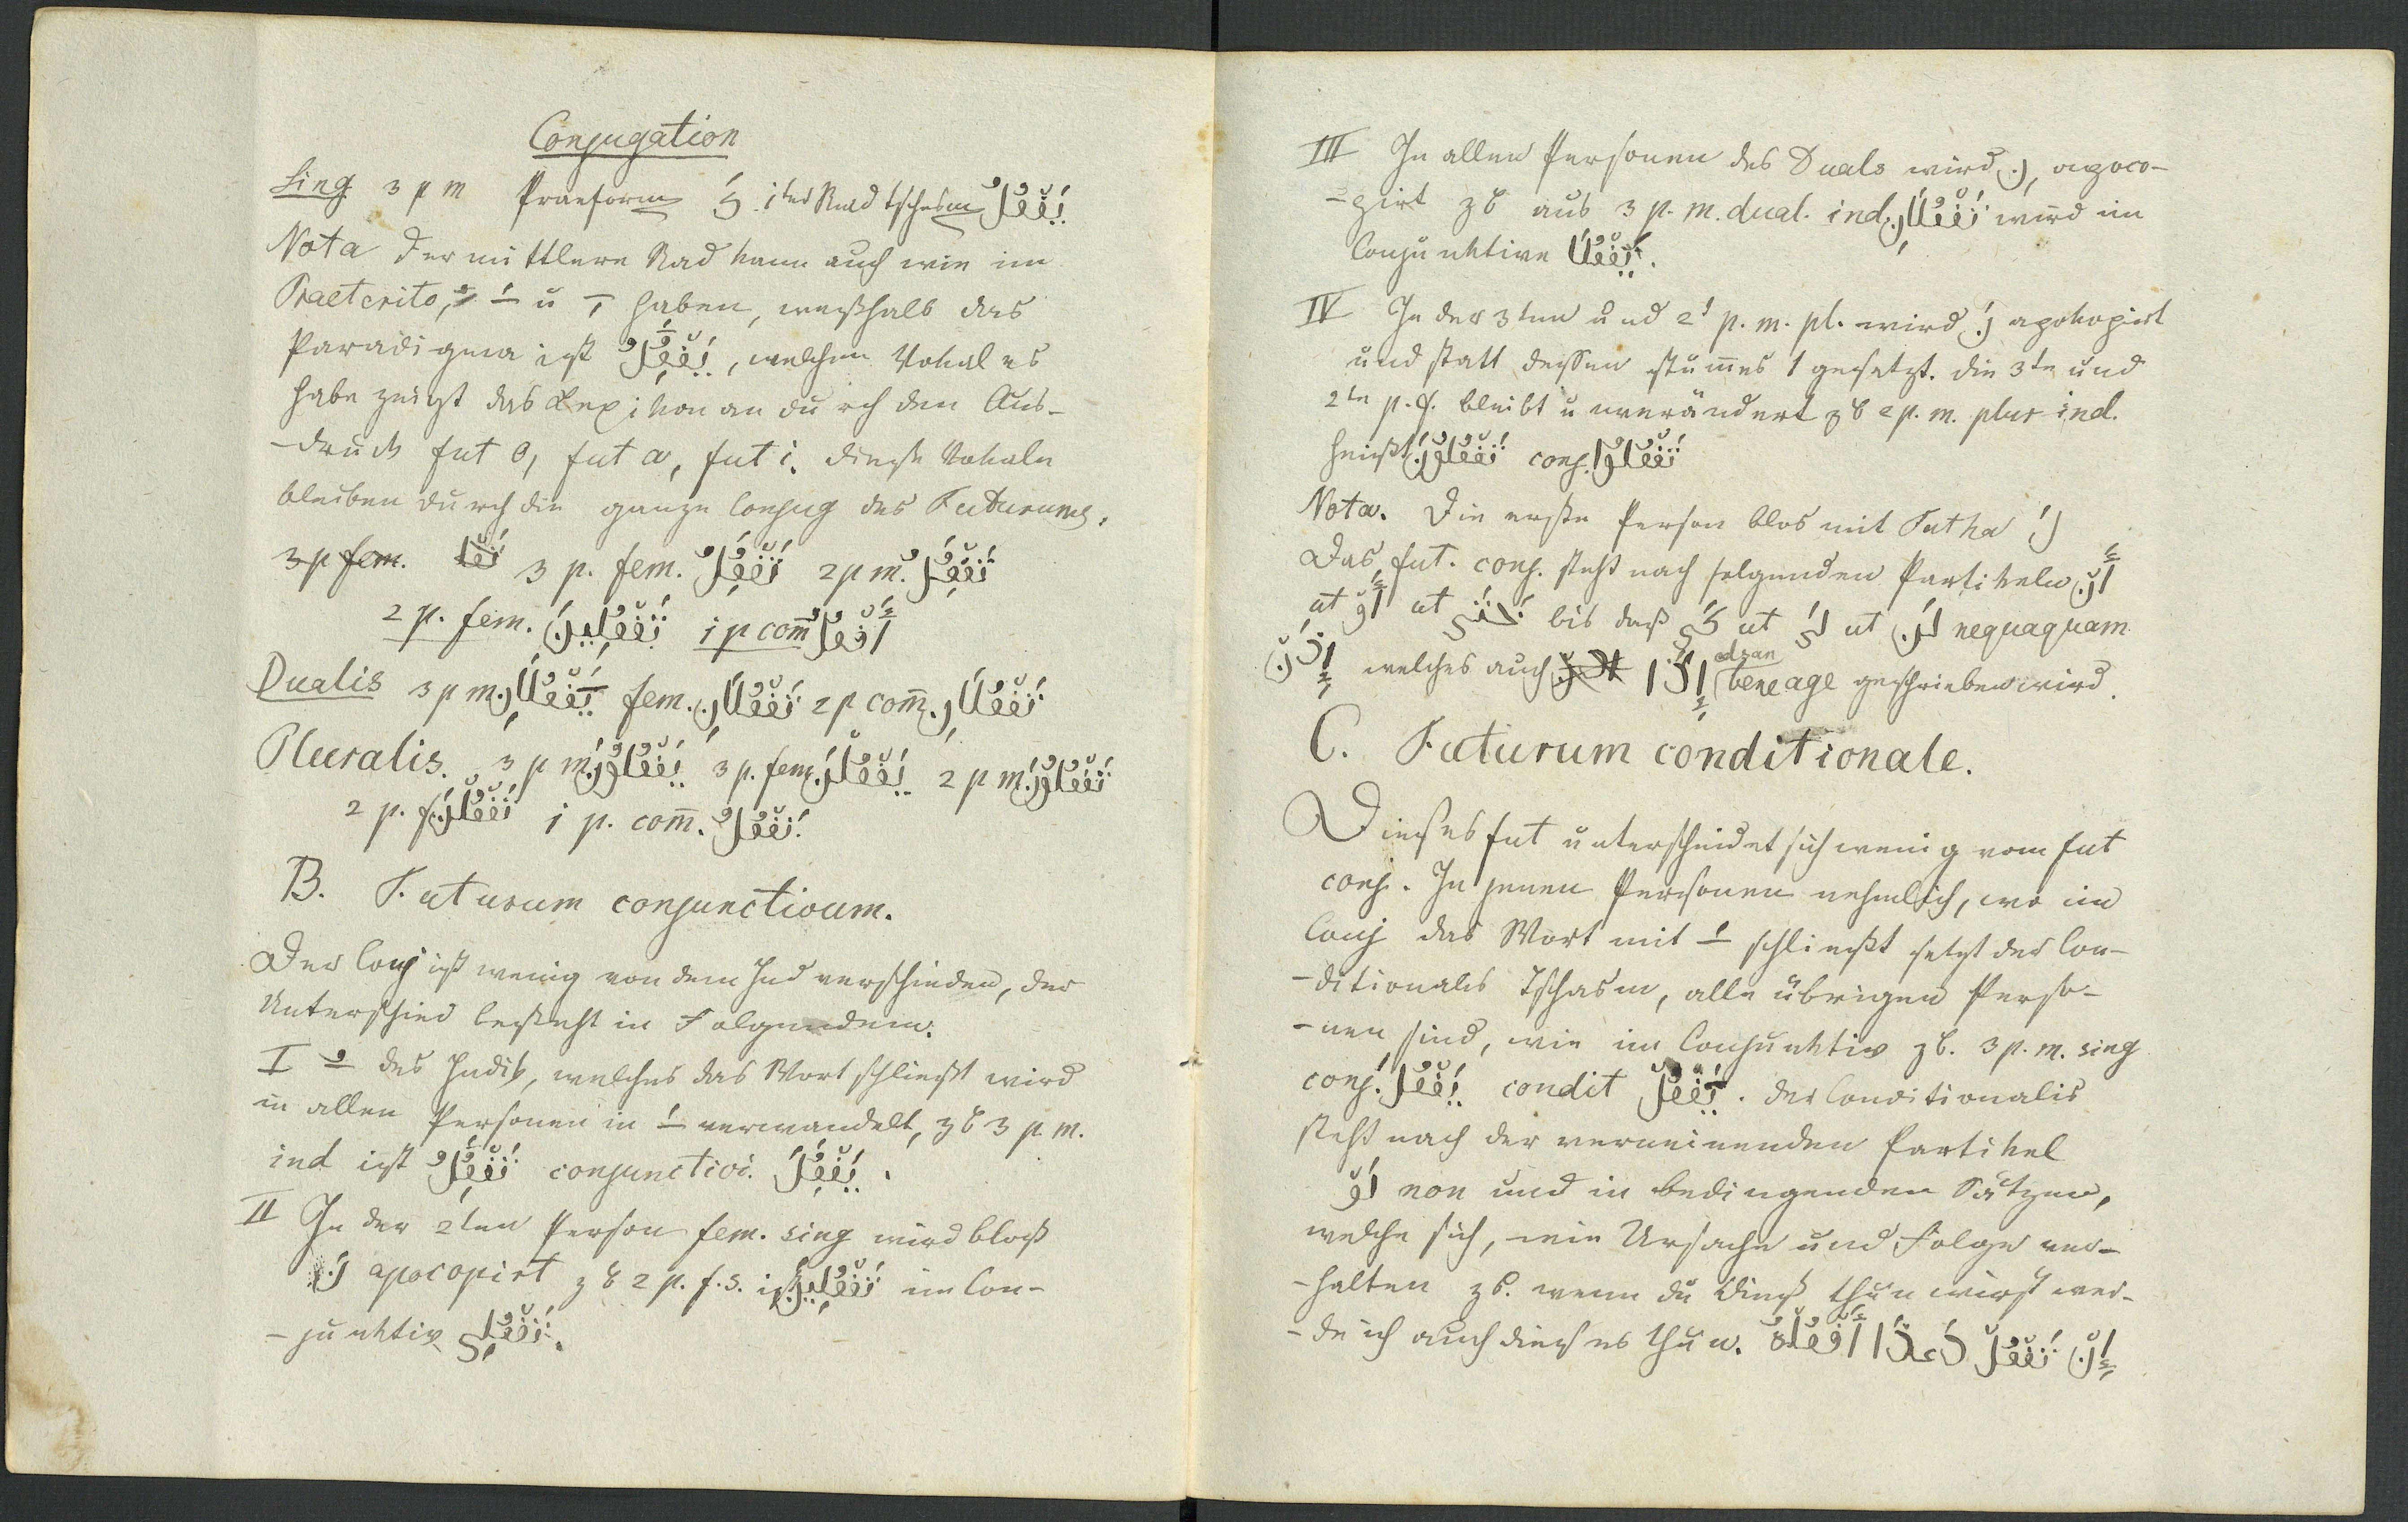 Conjugation
Sing 3 p m Praeform يَ 1ter Rad tschesm يَفْعُلُ
Nota der mittlere Rad kann auch wie im
Praeterito, ـُ ـَ u ـِ haben, weßhalb das
Paradigma ist يَفْعُِلُ, welchen Vokal es
habe zeigt das Lexikon an durch den Aus-
-druck fut o, fut a, fut i. Diese Vokale
bleiben durch die ganze Conjug des Futurums.
3 p fem. تَفْعُ 3 p. fem. تَفْعُلُ 2 p m. تَفْعُلُ
2 p. fem. تَفْعُلِينَ 1 p com̄ أَفْعُلُ
Dualis 3 p m. يَفْعُلَانِ fem. تَفْعُلَانِ 2 p com̄. تَفْعُلَانِ
Pluralis. 3 p m. يَفْعُلُونَ 3 p. fem. يَفْعُلْنَ 2 p m. تَفْعُلُونَ
2 p. f. تَفْعُلْنَ 1 p. com̄. نَفْعُلُ
B. Futurum conjunctivum.
Der Conj ist wenig von dem Ind verschieden, der
Unterschied besteht in Folgendem.
I ـُ des Indik, welches das Wort schließt wird
in allen Personen in ـَ verwandelt, zb 3 p m.
ind ist تَفْعُلُ conjunctivi. يَفْعُلَ.
II In der 2ten Person fem. sing wird bloß
نَ apocopirt zb 2 p. f. s. ist تَفْعُلِينَ im Con-
-junktiv تَفْعُلِي.
III In allen Personen des Duals wird نِ apoco-
-pirt zb aus 3 p. m. dual. ind. تَفْعُلَانِ wird im
Conjunktive يَفْعُلَا.
IV In der 3ten und 2t p. m. pl. wird نَ apokopirt
und statt dessen stum̄es ا gesetzt. die 3te und
2te p. f. bleibt unverändert zb 2 p. m. plur ind.
heißt تَفْعُلُونَ conj. تَفْعُلُوا
Nota. Die erste Person blos mit Fatha لَ
Das fut. conj. steht nach folgenden Partikeln أَنْ
ut أَوْ ut حَتَّى bis daß كَي ut لِي ut لَنْ nequaquam
إِذَنْ welches auch إِذًا edzan bene age geschrieben wird.
C. Futurum conditionale.
Dieses fut unterscheidet sich wenig vom fut
conj. In jenen Personen nehmlich, wo im
Conj das Wort mit ـَ schließt setzt der Con-
-ditionalis Tschasm, alle übrigen Perso-
-nen sind, wie im Conjunktiv zb. 3 p. m. sing
conj. يَفْعُلَ condit يَفْعُلْ. der Conditionalis
steht nach der verneinenden Partikel
لَوْ non und in bedingenden Sätzen,
welche sich, wie Ursache und Folge ver-
-halten zb. wenn du dieß thun wirst wer-
-de ich auch dieses thun. إِنْ تَفْعُلْ أَفْعُلْهُ